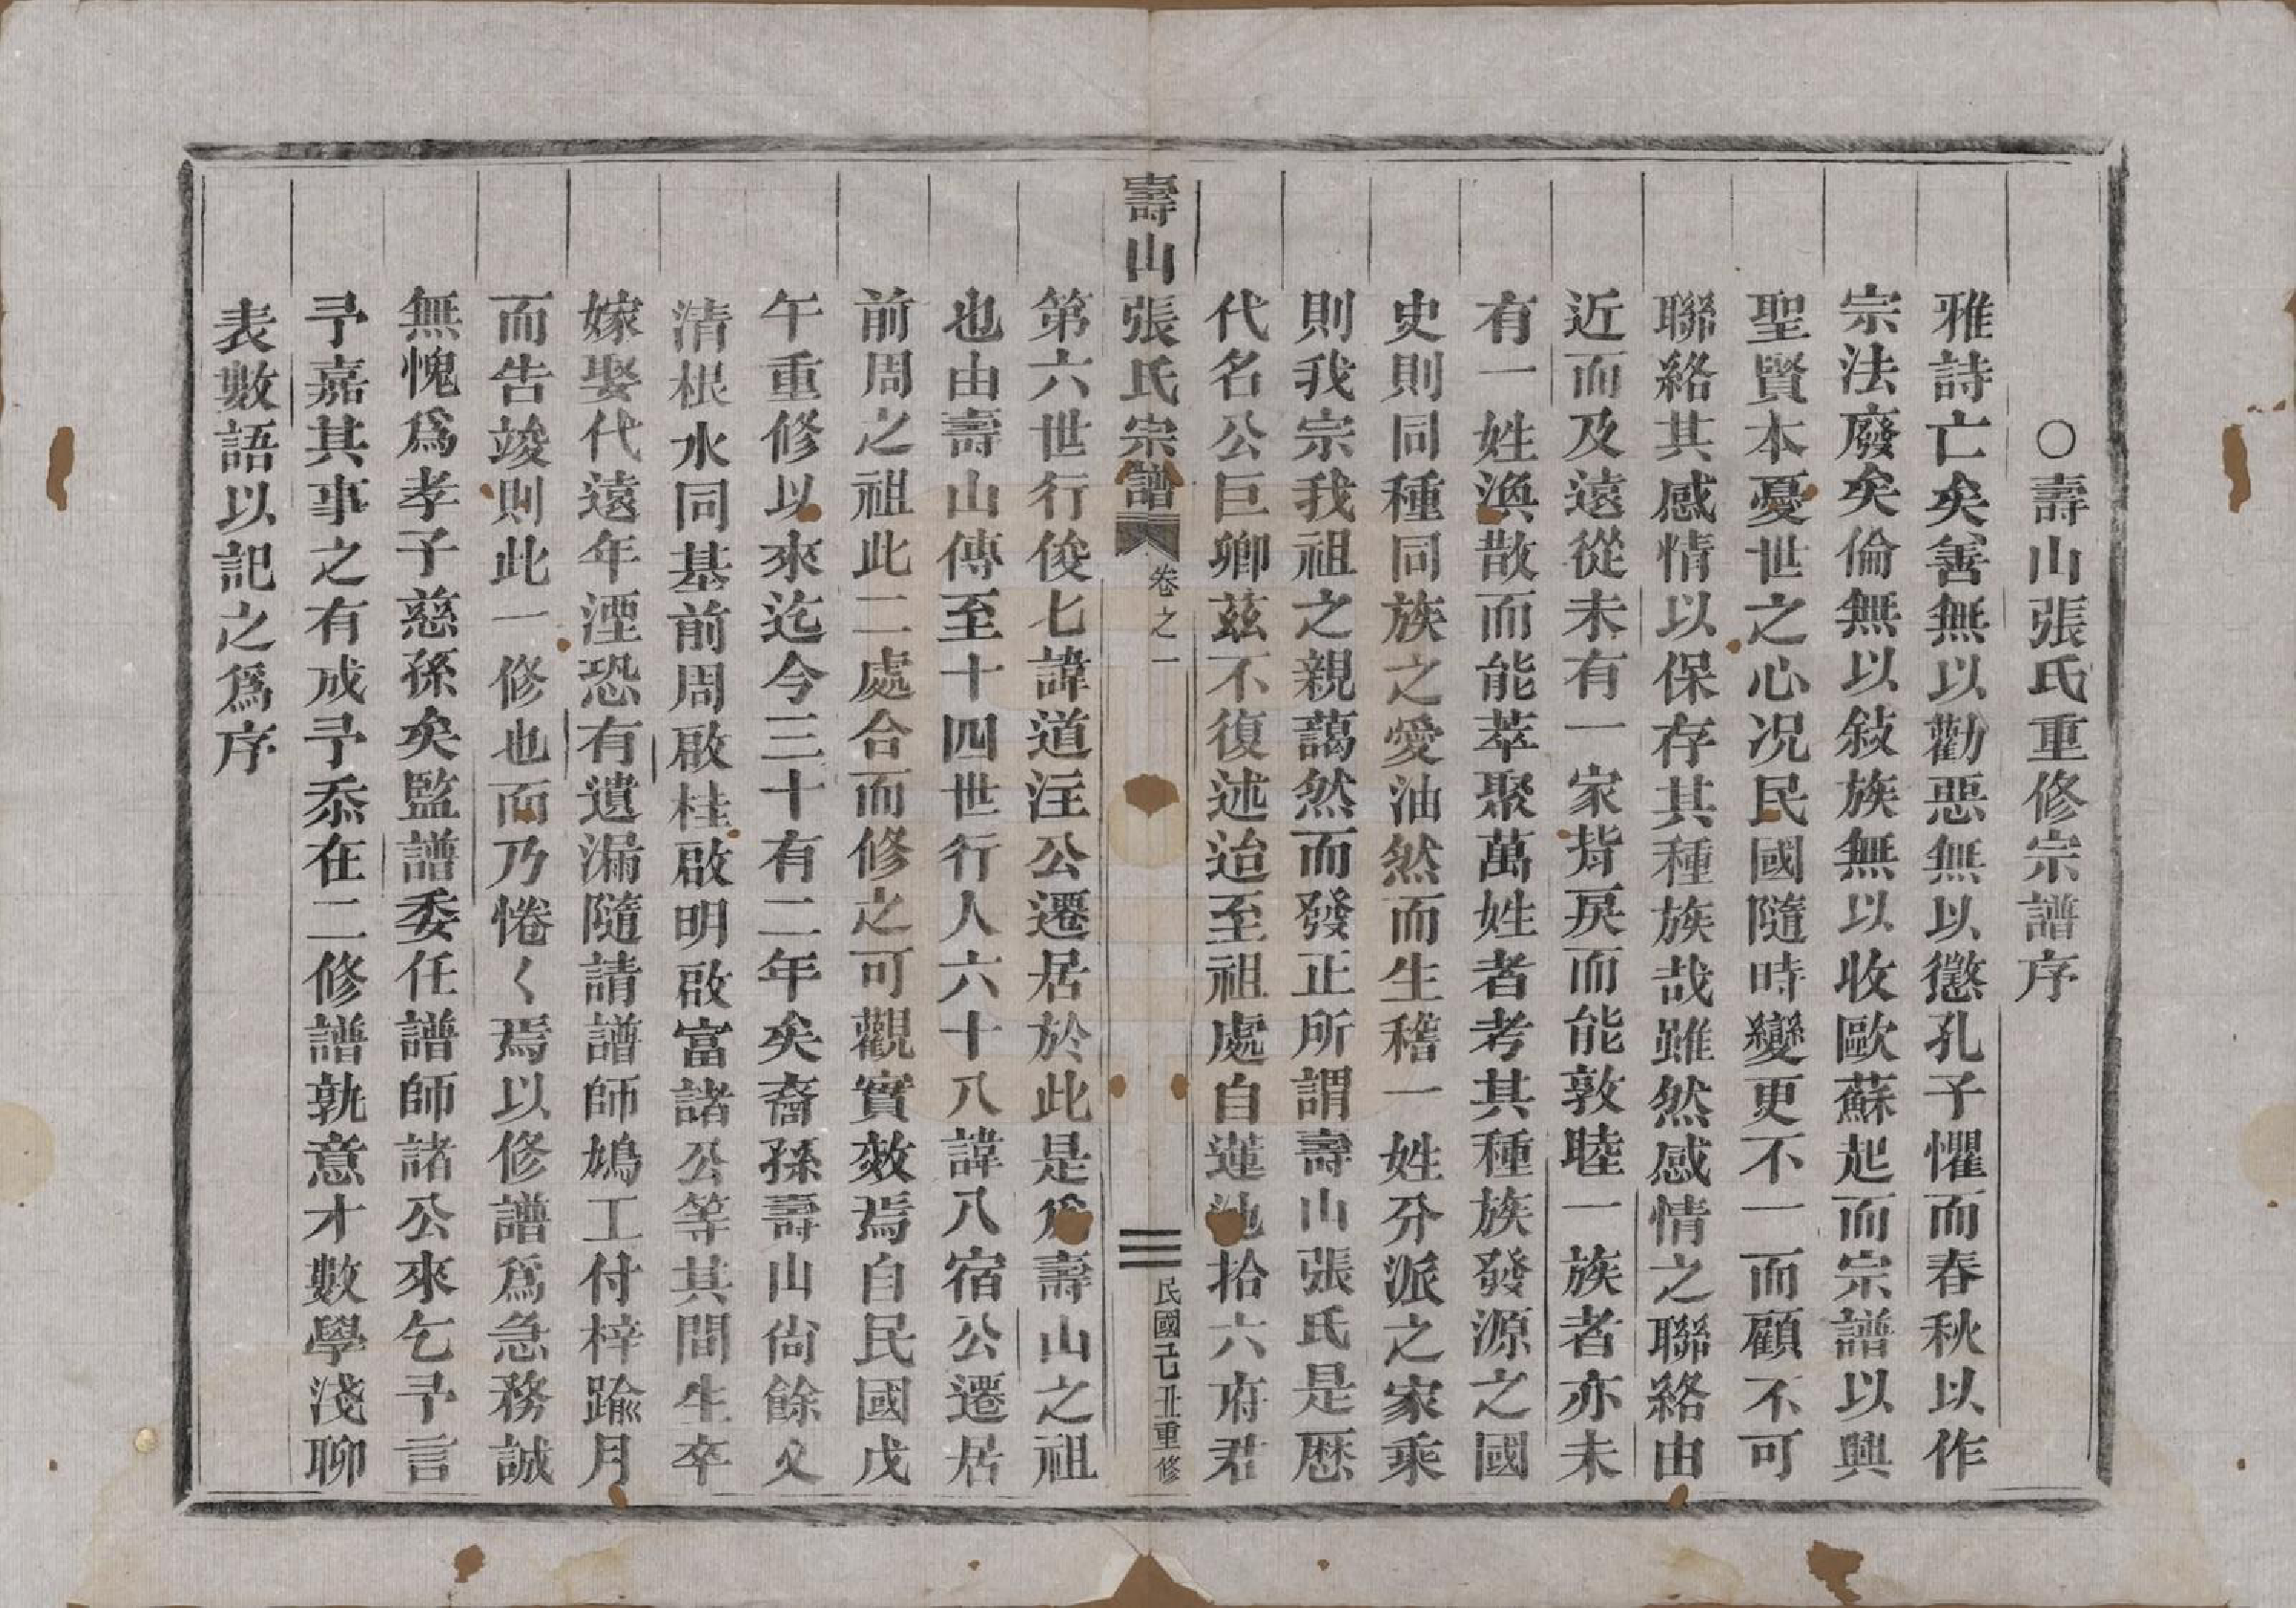 ○壽山張氏重修宗譜序
雅詩亡矣善無以勸惡無以懲孔子懼而春秋以作
宗法廢矣倫無以敍族無以收歐蘇起而宗譜以興
聖賢本憂世之心况民國隨時變更不一而顧不可
聯絡其感情以保存其種族哉雖然感情之聯絡由
近而及遠從未有一家背戾而能敦睦一族者亦未
有一姓渙散而能萃聚萬姓者考其種族發源之國
史則同種同族之愛油然而生稽一姓分派之家乘
則我宗我祖之親藹然而發正所謂壽山張氏是歷
代名公巨卿茲不復述迨至祖處自蓮池拾六府君
壽山張氏宗譜
卷之一
三
民國己丑重修
第六世行俊七諱道注公遷居於此是爲壽山之祖
也由壽山傳至十四世行人六十八諱八宿公遷居
前周之祖此二處合而修之可觀實效焉自民國戊
午重修以來迄今三十有二年矣裔孫壽山尙餘父
清根水同基前周啟桂啟明啟富諸公等其間生卒
嫁娶代遠年湮恐有遺漏隨請譜師鳩工付梓踰月
而告竣則此一修也而乃惓〱焉以修譜爲急務誠
無愧爲孝子慈孫矣監譜委任譜師諸公來乞予言
予嘉其事之有成予忝在二修譜孰意才數學淺聊
表數語以記之爲序